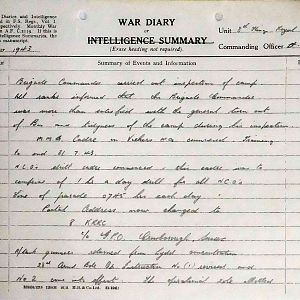 Diaries and Intelligence
in F.S. Regs, Vol. I
respectively. Monthly War
A.F. C.2119. If this is
Intelligence Summaries, the
manuscript.
1943
WAR DIARY
OR
INTELLIGENCE SUMMARY
(Erase heading not required).
Unit
Commanding Officer
Summary of Events and Information
Brigade Commander carried out inspection of camp
All ranks informed that the Brigade Commander
was more than satisfied with the general turn out
of Bn and tidyness of the camp during his inspection.
M.M.G. Cadre on Vickers M.G. commenced training
to end 31.7.43.
N.C.O's drill cadre commenced; this cadre was to
comprise of 1 hr a day drill for all N.C.O's
Time of parade 0745 hrs each day.
Postal Address now changed to
8 KRRC
c/o GPO, Crowborough, Sussex
gunners returned from Lydd concentration
Instruction No (1) received and
No 2 came into effect. operational role